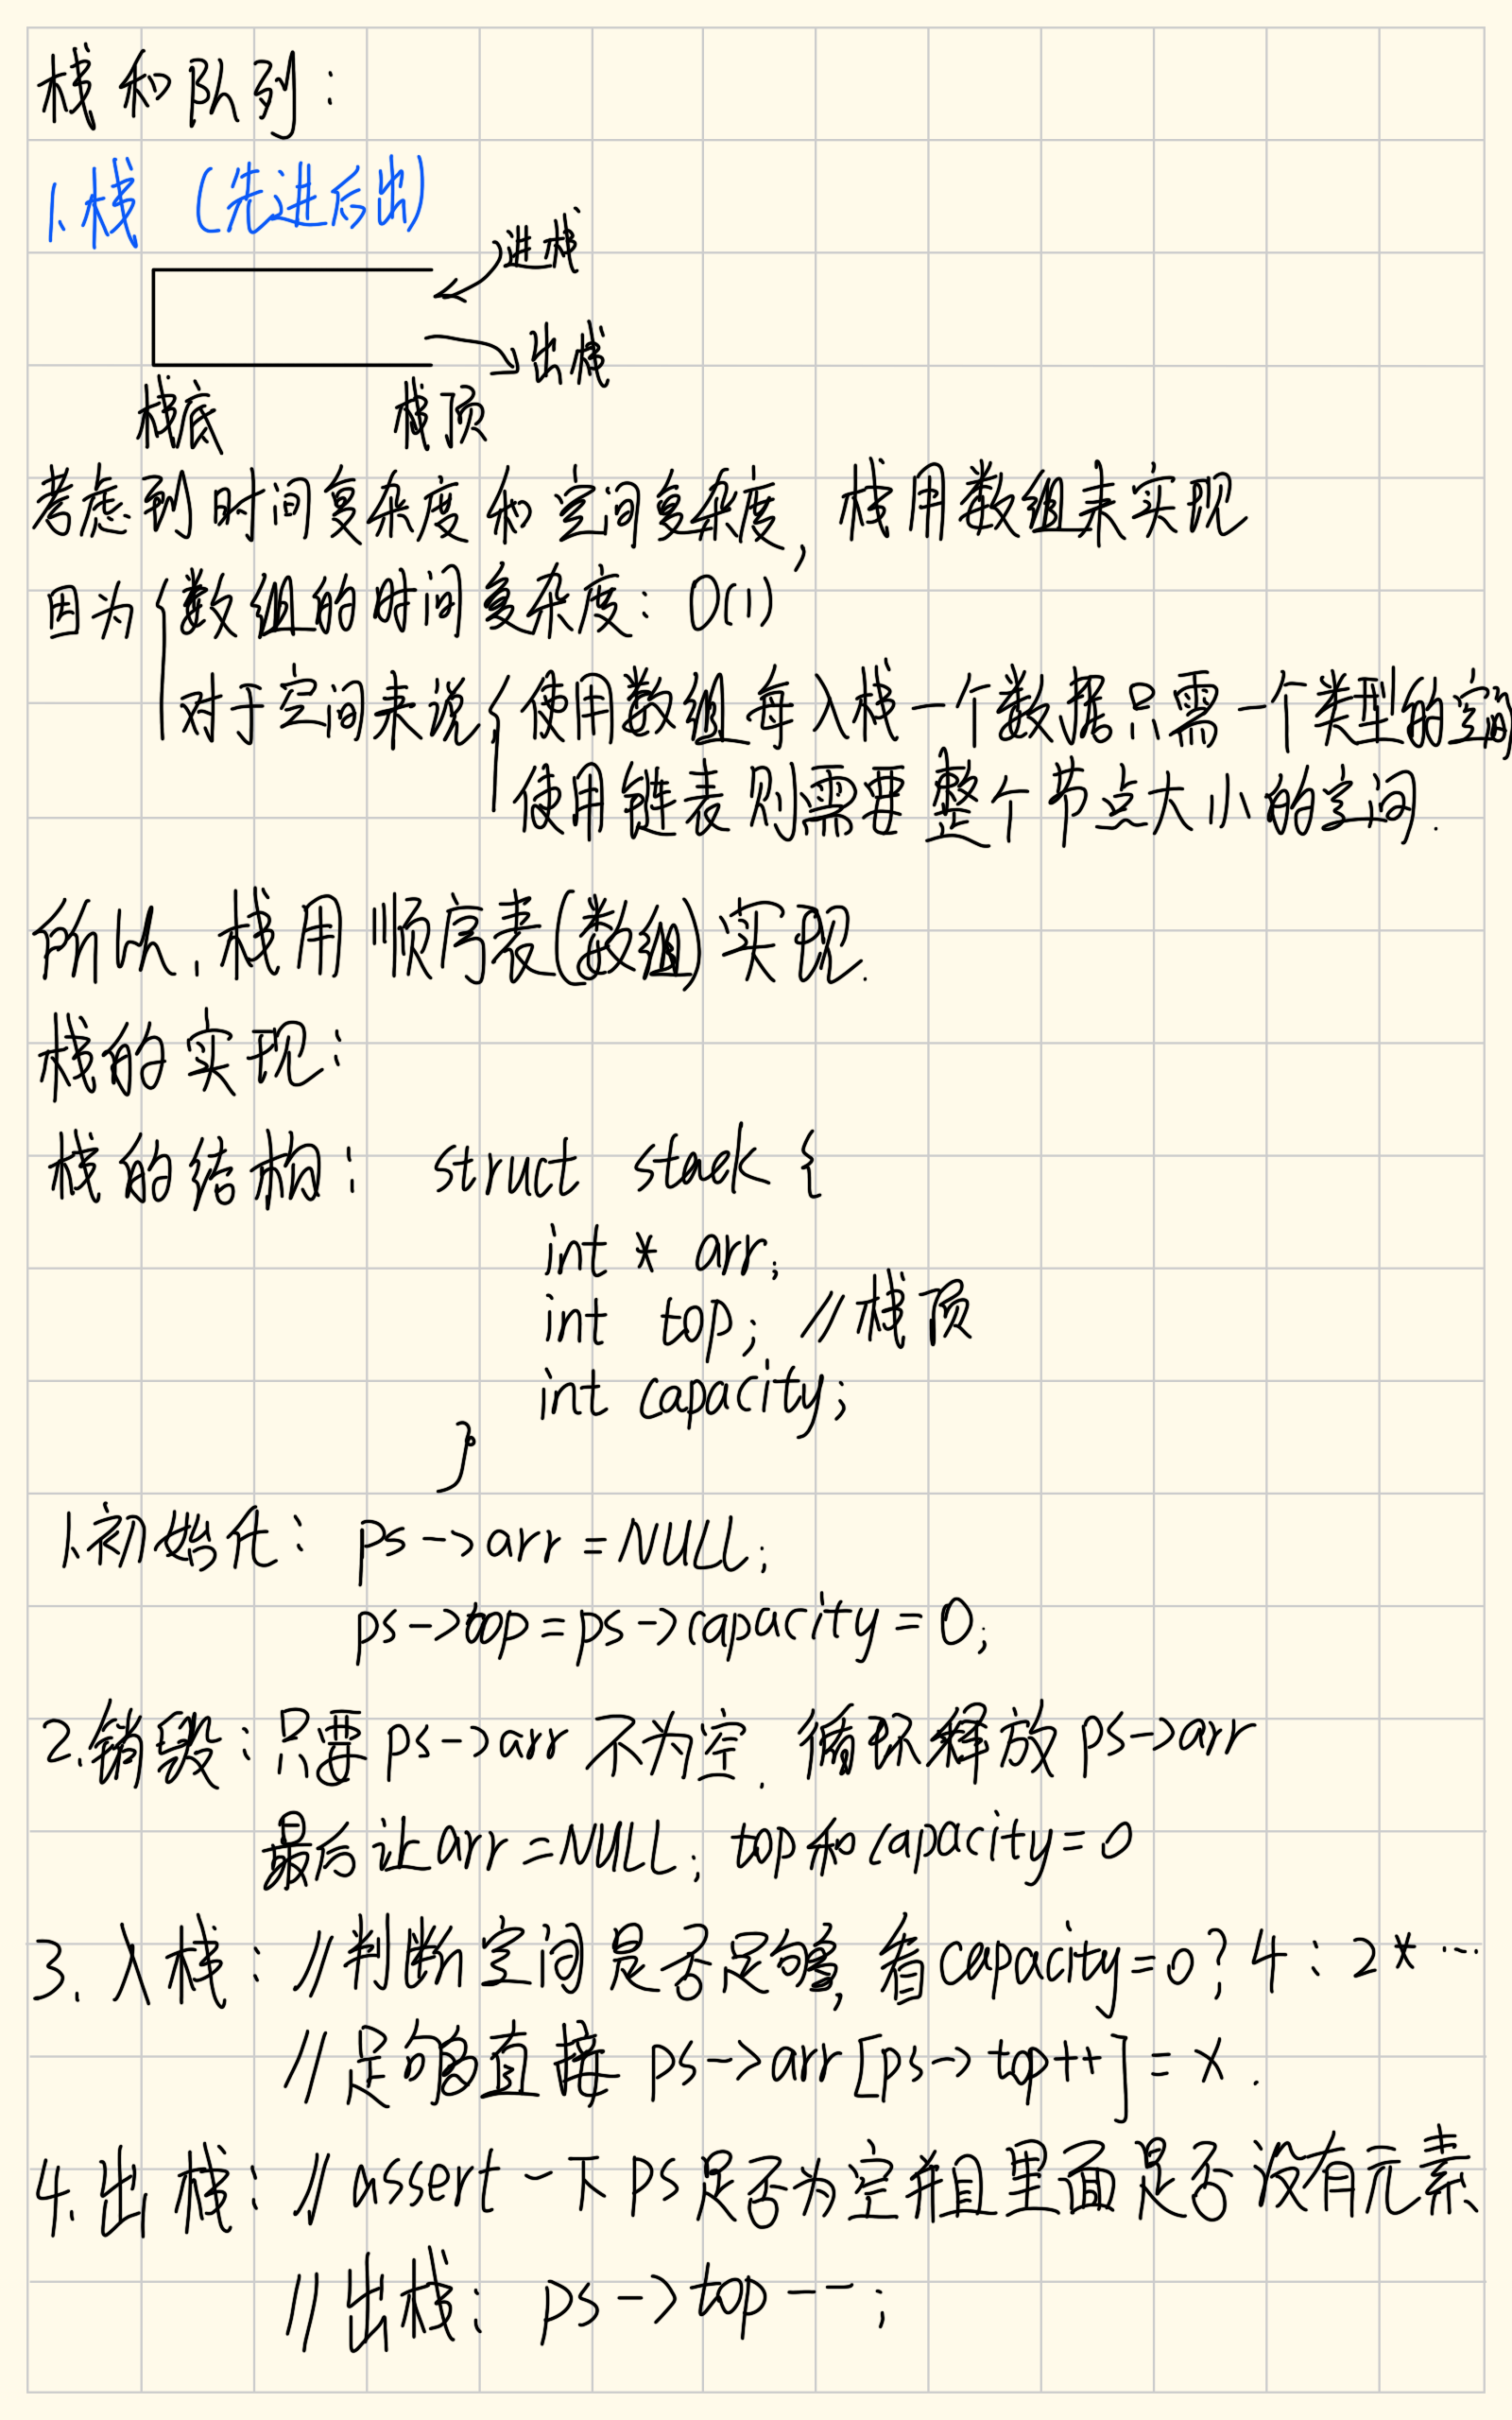 栈和队列：
1.栈（先进后出）
进栈
出栈
栈底 栈顶
考虑到时间复杂度和空间复杂度，栈用数组来实现
因为{数组的时间复杂度：O(1)
对于空间来说{使用数组每入栈一个数据只需一个类型的空间
使用链表则需要整个节点大小的空间.
所以，栈用顺序表(数组)实现.
栈的实现：
栈的结构： struct stack {
int * arr;
int top; //栈顶
int capacity;
}
1.初始化： ps->arr=NULL;
ps->top=ps->capacity=0;
2.销毁：只要ps->arr不为空，循环释放ps->arr
最后让arr=NULL; top和capacity=0
3.入栈：//判断空间是否足够，看capacity=0?4:2*…
//足够直接 ps->arr[ps->top++]=x.
4.出栈：//assert一下ps是否为空并且里面是否没有元素
//出栈：ps->top--;